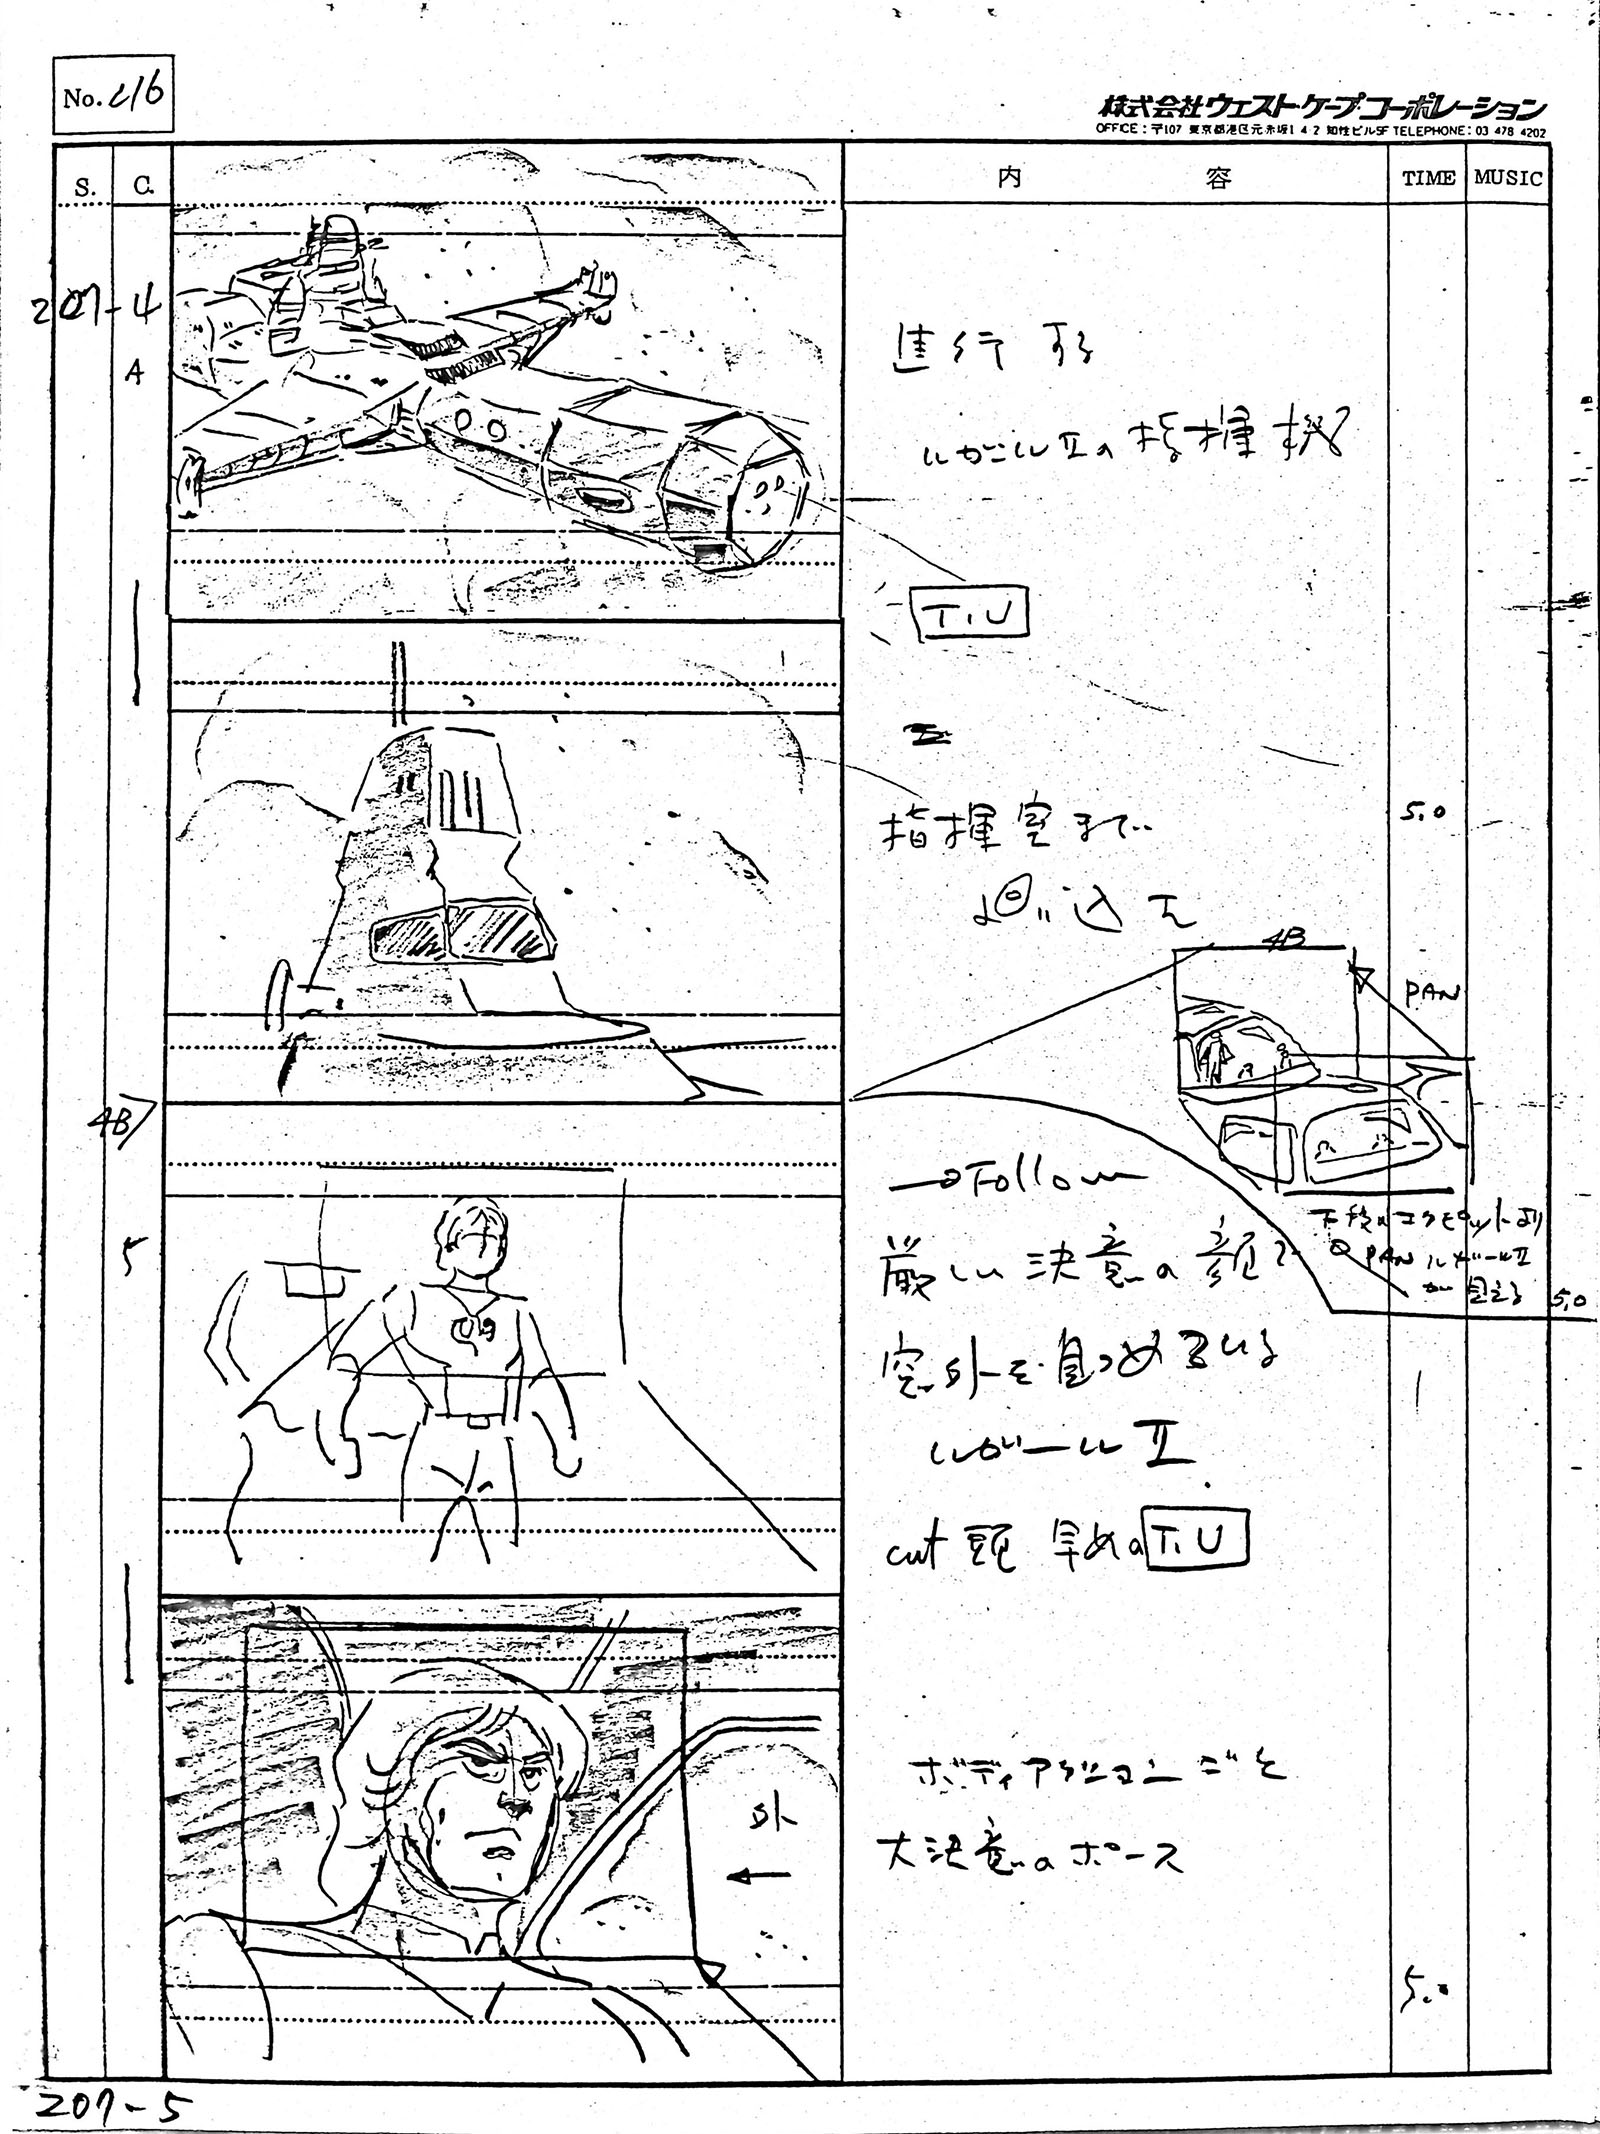 No. 416
株式会社ウェスト・ケープ・コーポレーション
OFFICE:〒107 東京都港区元赤坂1 4 2 知性ビル5F TELEPHONE:03 478 4202
S. C. 内容 TIME MUSIC
207-4
A
進行する
ルガールⅡの指揮機
T.U
指揮室まで 5.0
廻り込む
4B
PAN
4B
→Follow
下段のコクピットより
PAN ルガールⅡ
が見える 5.0
5
厳しい決意の顔で
窓外を見つめている
ルガールⅡ
cut頭 早めのT.U
ボディアクションごと
外
←
大決意のポーズ
5.0
207-5